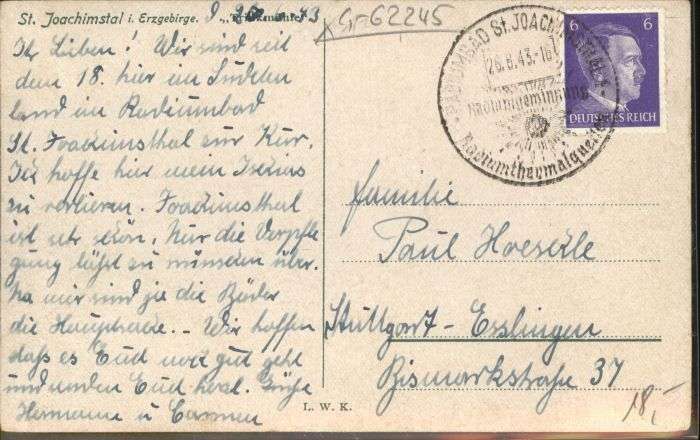 St. Joachimstal i. Erzgebirge.
43
Gr-62245
RADIUMBAD St. JOACHIMSTHAL
26.8.43.-18
Radiumgewinnung
Radiumthermalquellen
6 6
DEUTSCHES REICH
Ihr Lieben! Wir sind seit
dem 18. hier im Sudeten
land im Radiumbad
St. Joachimsthal zur Kur.
Ich hoffe hier mein
zu verlieren. Joachimsthal
ist sehr schön. Nur die Verpfle
gung läßt zu wünschen über.
Na wir sind je die Bäder
die Hauptsache. - Wir hoffen
daß es Euch noch gut geht
und Euch Grüße
Hermann u Carmen
Familie
Paul
Stuttgart-Esslingen
Bismarkstraße 37
L. W. K.
18,-